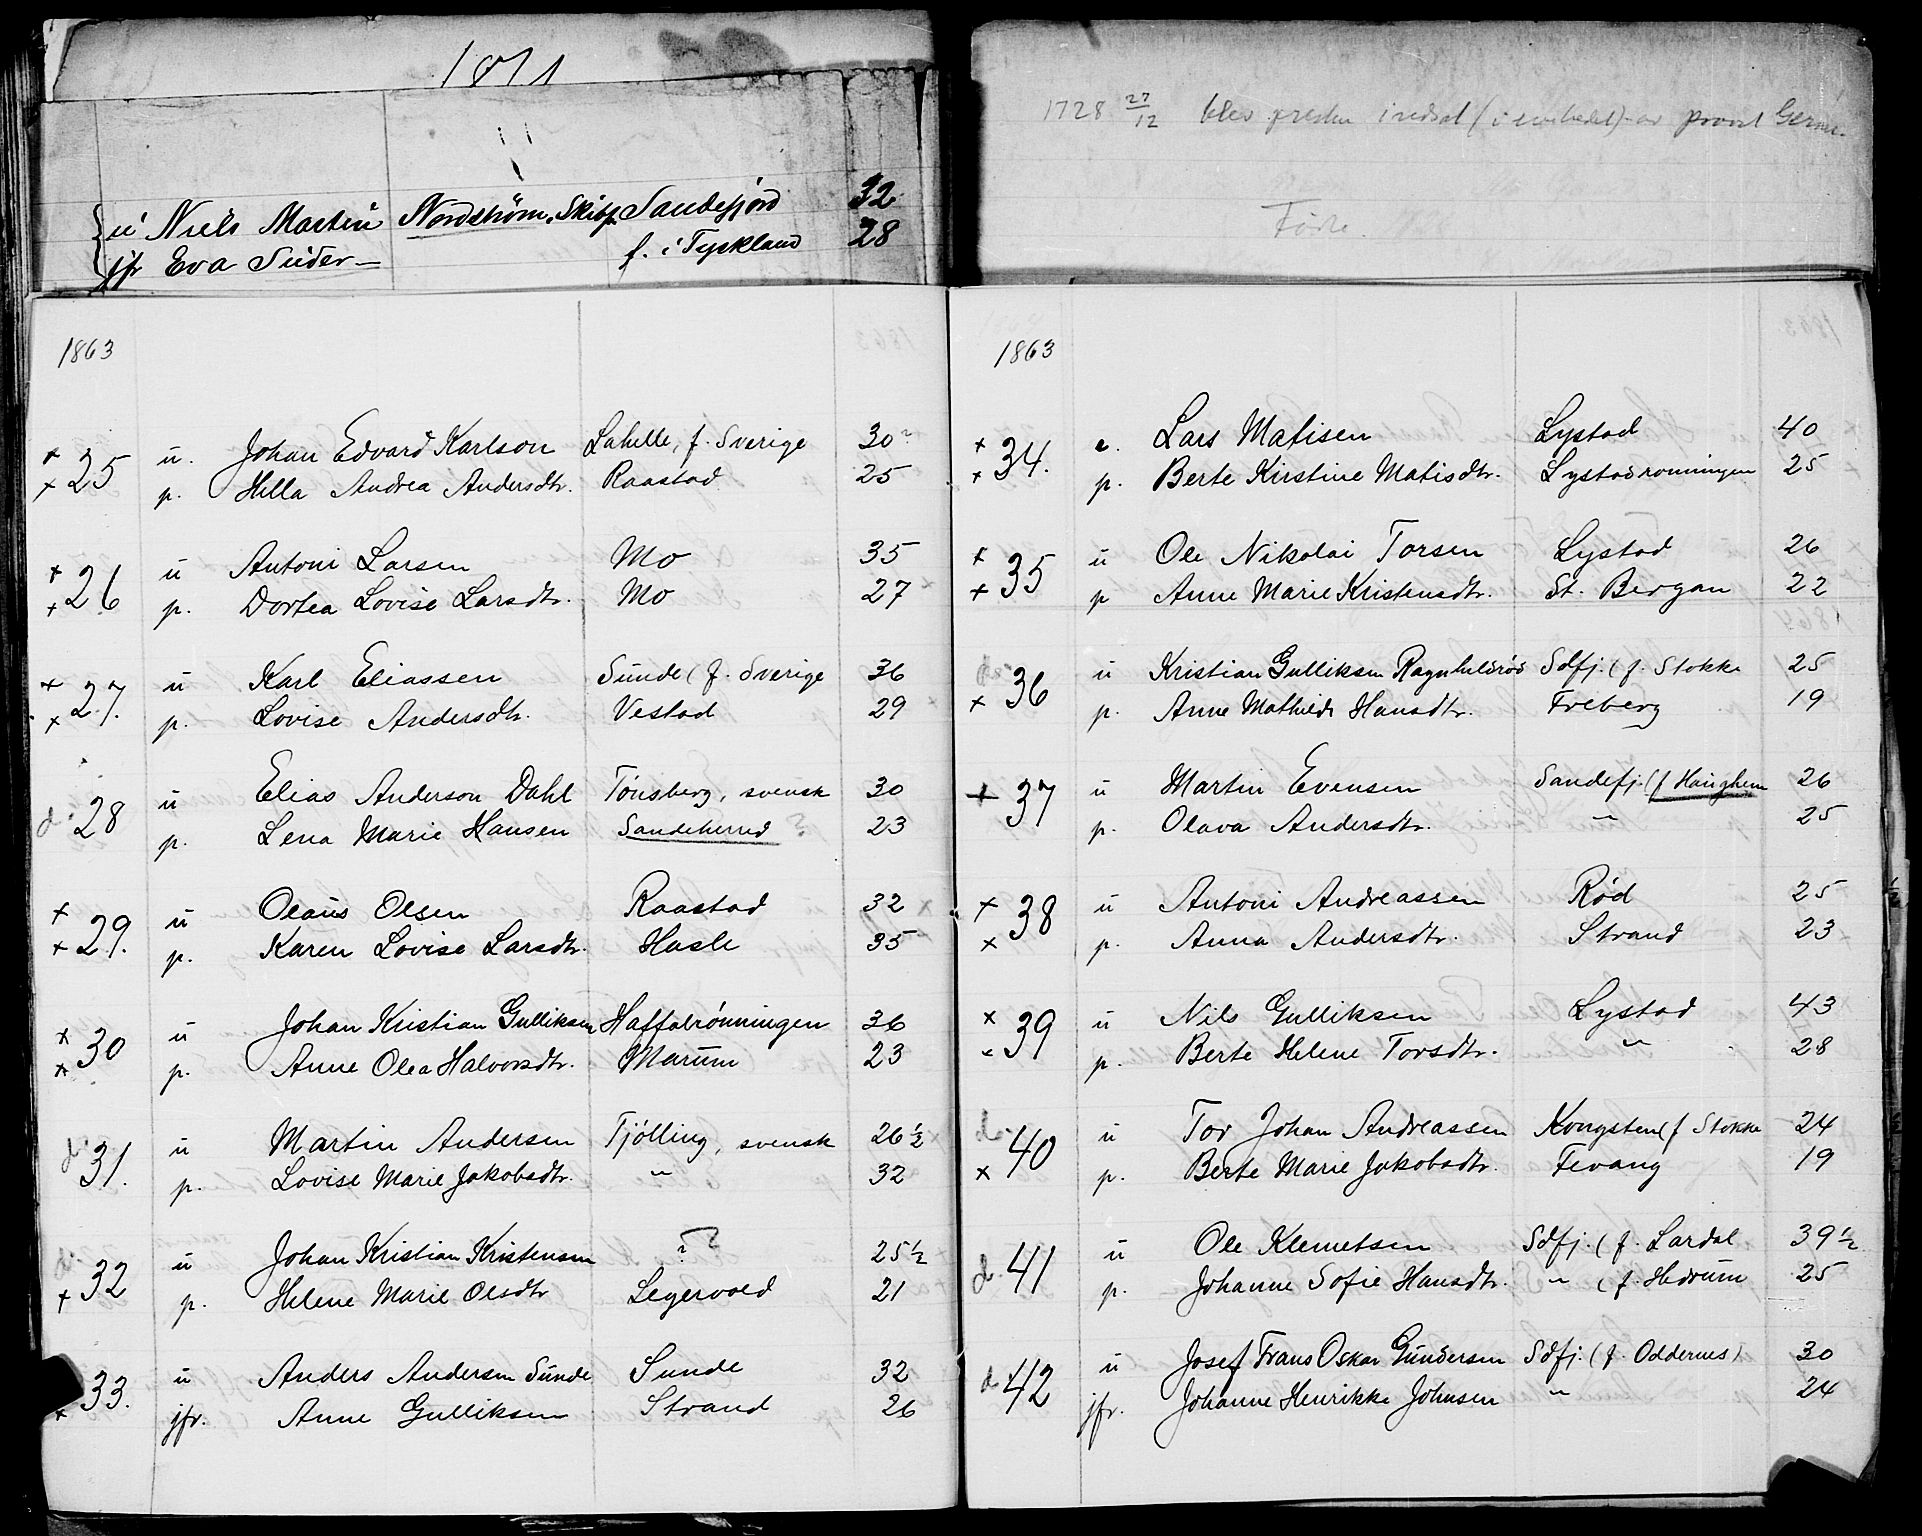 1871
u Niels Martin Nordstrøm, Skibsf. Sandefjord 32
jfr Eva Suder f. i Tyskland 28
1863
25 u. Johan Edvard Karlson Lahelle, f. Sverige 30?
p. Hella Andrea Andersdtr. Raastad 25
26 u Antoni Larsen Mo 35
p. Dortea Lovise Larsdtr. Mo 27
27. u Karl Eliassen Sunde (f. Sverige 36
p. Lovise Andersdtr. Vestad 29
d. 28 u Elias Anderson Dahl Tønsberg, svensk 30
p. Lena Marie Hansen Sandeherred 23
29. u Olaus Olsen Raastad 32
p. Karen Lovise Larsdtr. Hasle 35
30 u Johan Kristian Gulliksen Haffalrønningen 36
p. Anne Olea Halvorsdtr. Marum 23
d. 31. u Martin Andersen Tjølling, svensk 26½
p. Lovise Marie Jakobsdtr. " 32
d. 32 u Johan Kristian Kristensen ? ? 25½
p. Helene Marie Olsdtr Legervold 21
33. u Anders Andersen Sunde Sunde 32
jfr. Anne Gulliksen Strand 26
1728 27/12 blev presten indsat (i embedet) av provst
Føste.
1863
34. e. Lars Matisen Lystad 40
p. Berte Kirstine Matisdtr. Lystadrønningen 25
35 u Ole Nikolai Torsen Lystad 26
p Anne Marie Kristensdtr. St. Bergan 22
d. 36 u Kristian Gulliksen Ragnhildrød Sdfj. (f. Stokke 25
p. Anne Mathilde Hansdtr. Freberg 19
37 u Martin Evensen Sandefj. (f Haughem 26
p. Olava Andersdtr. " 25
38 u Antoni Andreassen Rød 25
p. Anna Andersdtr. Strand 23
39 u Nils Gulliksen Lystad 43
p. Berte Helene Torsdtr. " 28
d. 40 u Tor Johan Andreassen Kongsten (f Stokke 24
p. Berte Marie Jakobsdtr. Fevang 19
d. 41 u Ole Klemetsen Sdfj. (f. Lardal 39½
p. Johanne Sofie Hansdtr. " (f. Hedrum 25
d. 42 u Josef Frans Oskar Gundersen Sdfj. (f. Oddernes) 30
jfr. Johanne Henrikke Johnsen " 24